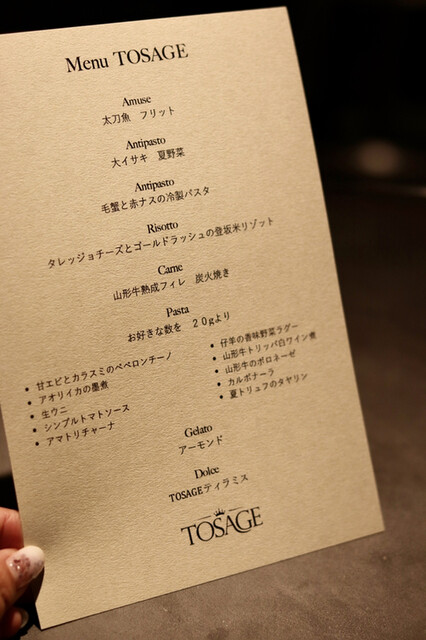 Menu TOSAGE
Amuse
太刀魚 フリット
Antipasto
大イサキ 夏野菜
Antipasto
毛蟹と赤ナスの冷製パスタ
Risotto
タレッジョチーズとゴールドラッシュの登坂米リゾット
Carne
山形牛熟成フィレ 炭火焼き
Pasta
お好きな数を 20gより
• 甘エビとカラスミのペペロンチーノ
• アオリイカの墨煮
• 生ウニ
• シンプルトマトソース
• アマトリチャーナ
• 仔羊の香味野菜ラグー
• 山形牛トリッパ白ワイン煮
• 山形牛のボロネーゼ
• カルボナーラ
• 夏トリュフのタヤリン
Gelato
アーモンド
Dolce
TOSAGEティラミス
TOSAGE